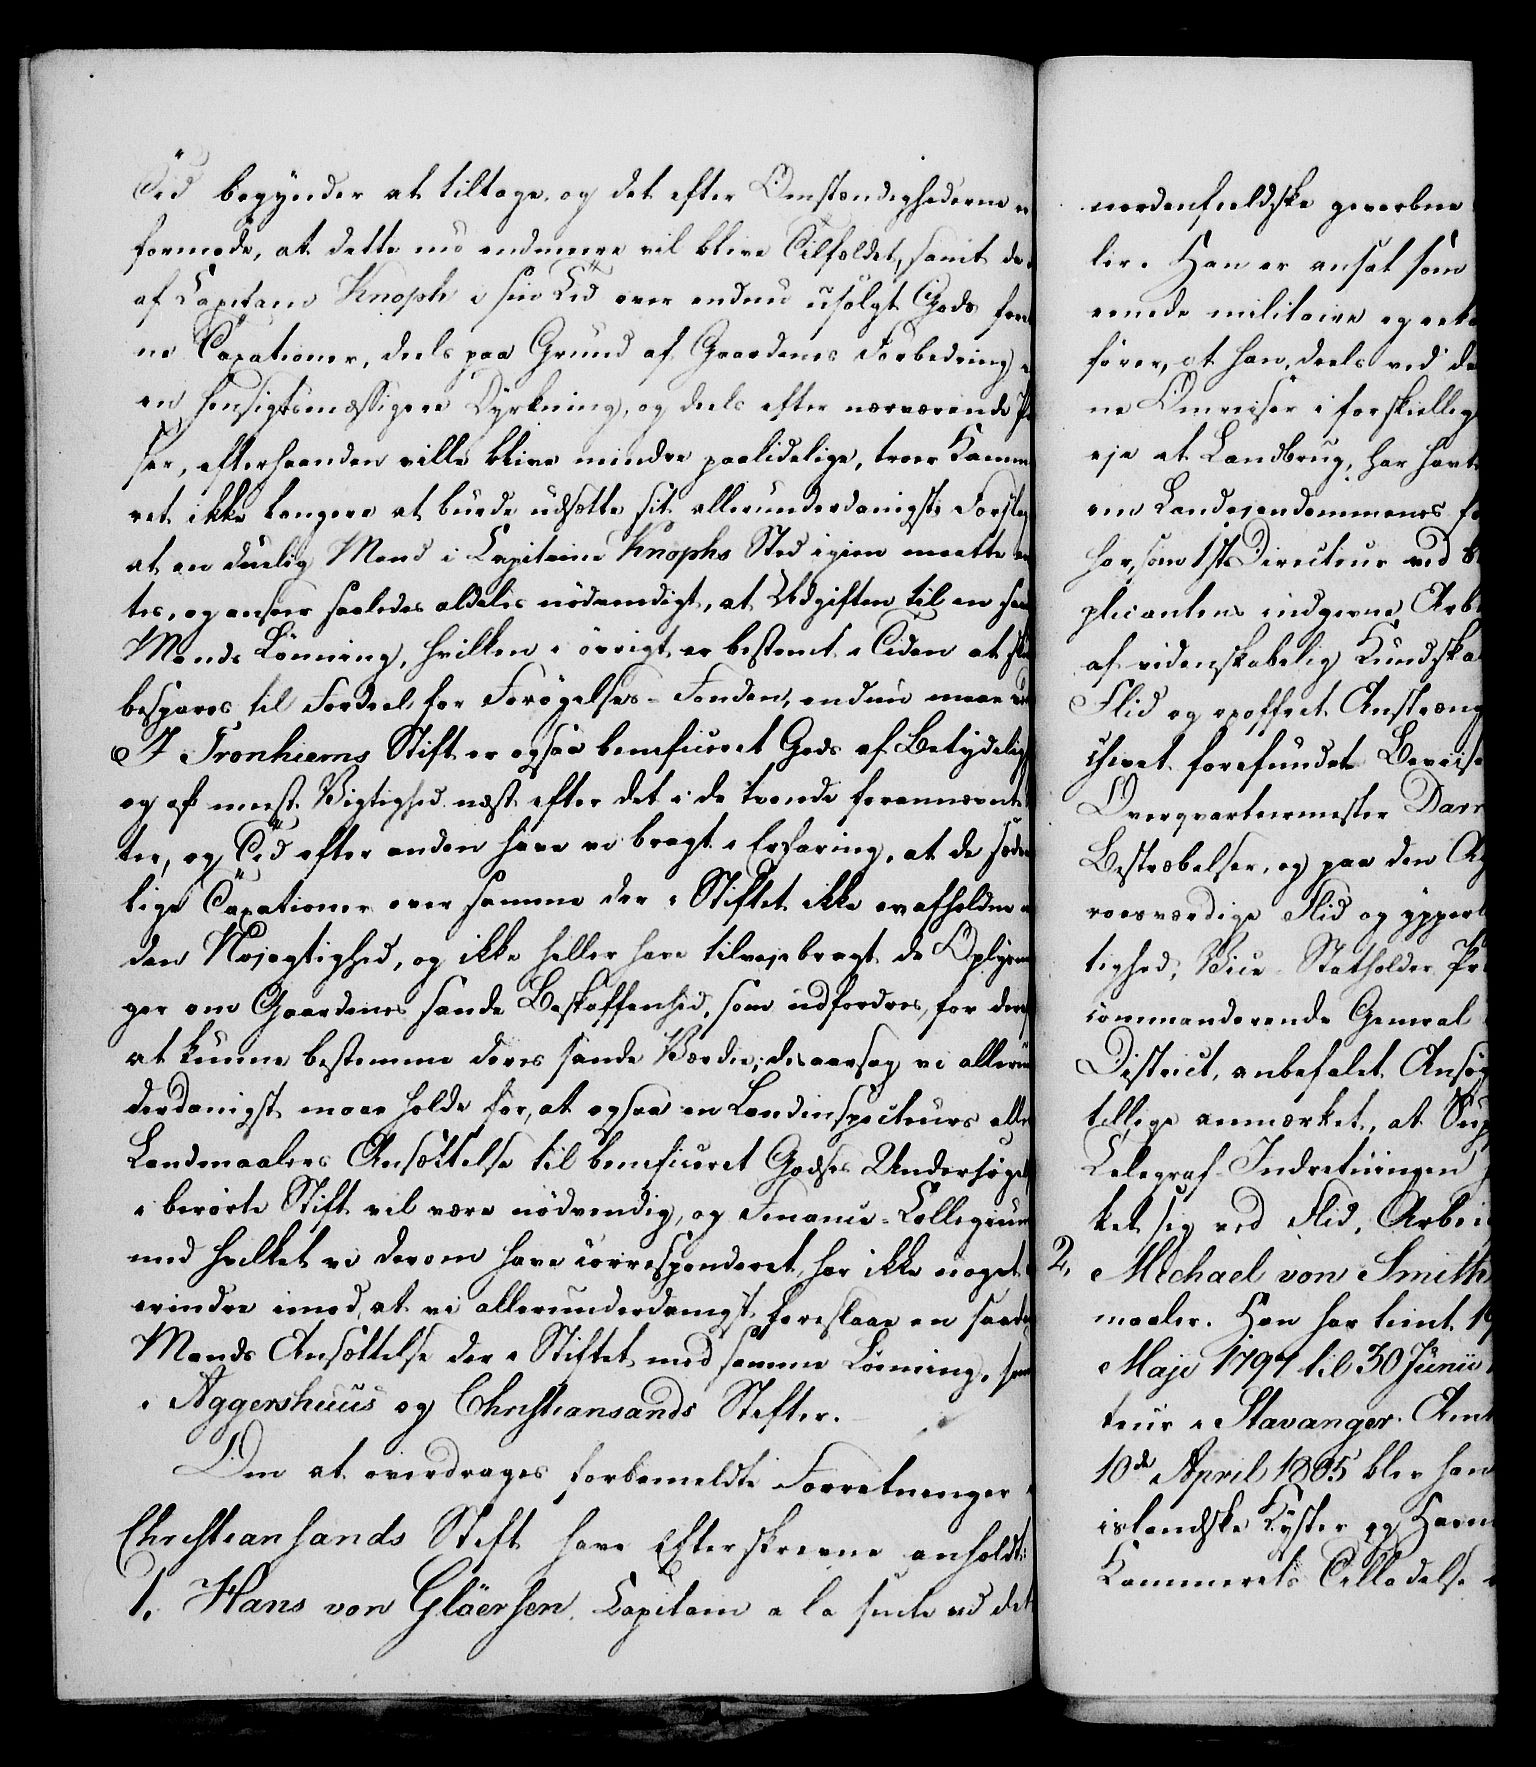 Tid begynder at tiltage, og det efter Omstændighederne er
formode, at dette nu endmere vil blive Tilfældet, samt de
af Capitain Knoph i sin Tid over endnu usolgt Gods fore
ne Taxationer, deels paa Grund af Gaardenes Forbedring
en hensigtsmæssigere Dyrkning, og deels efter nærværende Pr
ser, efterhaanden ville blive mindre paalidelige, troer Kamme
ret ikke længere at burde udsætte sit allerunderdanigste Forslag
at en duelig Mand i Capitaine Knophs Sted igien maatte an
tes, og ansees saaledes aldeles nödvendigt, at Udgiften til en saa
Mands Lönning, hvilken i övrigt er bestemt i Tiden at
bespares til Fordeel for Forögelses-Fonden, endnu maae
I Tronhiems Stift er ogsaa beneficeret Gods af Betydelig
og af meest Vigtighed næst efter det i de tvende forannævnte
ter, og Tid efter anden have vi bragt i Erfaring, at de sædvan
lige Taxationer over samme der i Stiftet ikke ere afholdne
den Nöjagtighed, og ikke heller have tilvejebragt de Oplysnin
ger om Gaardenes sande Beskaffenhed, som udfordres, for deraf
at kunne bestemme deres sande Værdie; desaarsag vi allerun
derdanigst maae holde for, at ogsaa en Landinspecteurs eller
Landmaalers Ansættelse til beneficeret Godses Undersögelse
i berörte Stift vil være nödvendig, og Finance-Collegium
med hvilket vi derom have corresponderet, har ikke noget
erindre imod, at vi allerunderdanigst foreslaae en saadan
Mands Ansættelse der i Stiftet med samme Lönning, som
i Aggershuus og Christiansands Stifter.
Om at overdrages forbemeldte Forretninger
Christiansands Stift have Efterskrevne anholdt:
1. Hans von Gläersen, Capitain a la suite ved det
nordenfieldske gevorbne
lir. Han er ansat som
rende militaire og
förer, at han, deels ved
ne Omreiser i forskiellige
eje at Landbrug, har havt
om Landejendommenes
har, som 1ste Directeur ved
plicantens indgivne Arb
af videnskabelig Kundska
Flid og opoffret Anstræng
chivet forefundet Beviise
Overqvarteermester Darr
Bestræbelser, og paa den
roesværdige Flid og ypperl
tighed; Vice-Statholder Pr
commanderende General
District, anbefalet Ansög
tillige anmærket, at Sup
Telegraf-Indretningen
ket sig ved Flid, Arbei
2. Michael von Smith
maaler. Han har tient 19
Maji 1794 til 30 Junii
teur i Stavanger Amt
10de April 1805 blev han
islandske Kyster og Havn
Kammerets Tilladelse